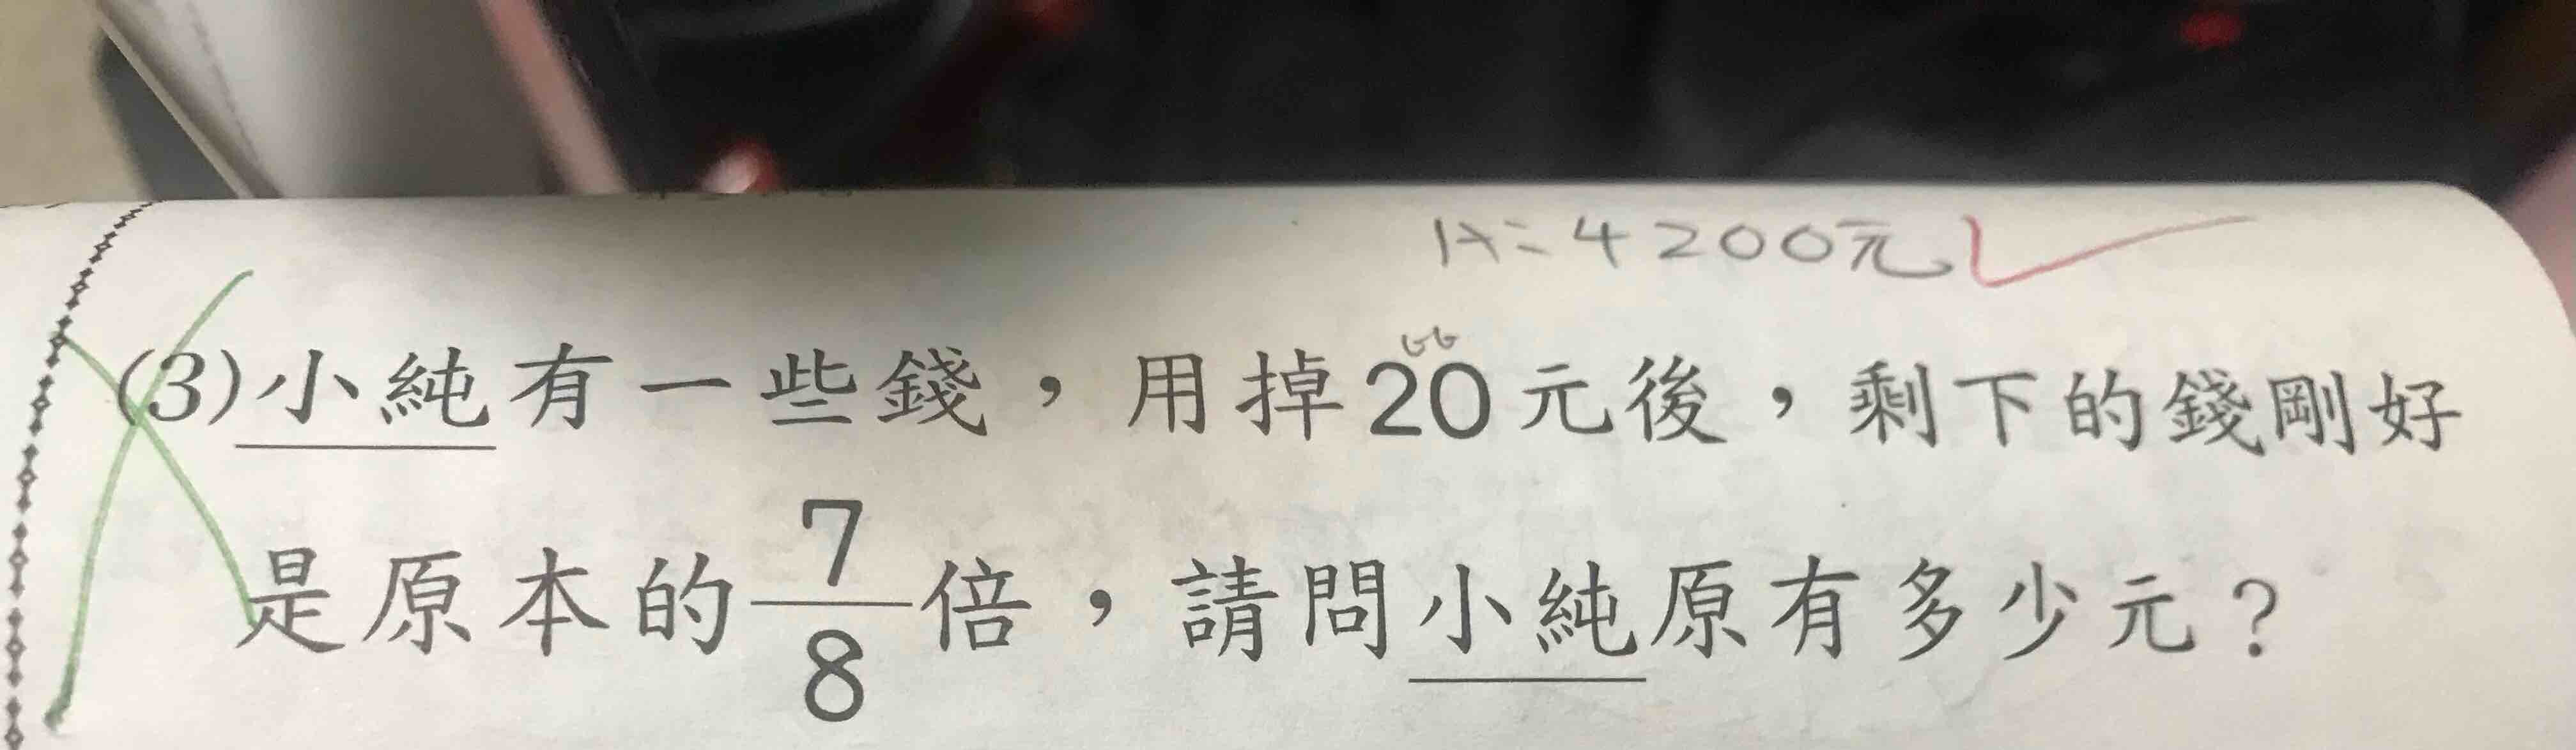 A:4200元
(3)小純有一些錢，用掉20元後，剩下的錢剛好
是原本的7/8倍，請問小純原有多少元？